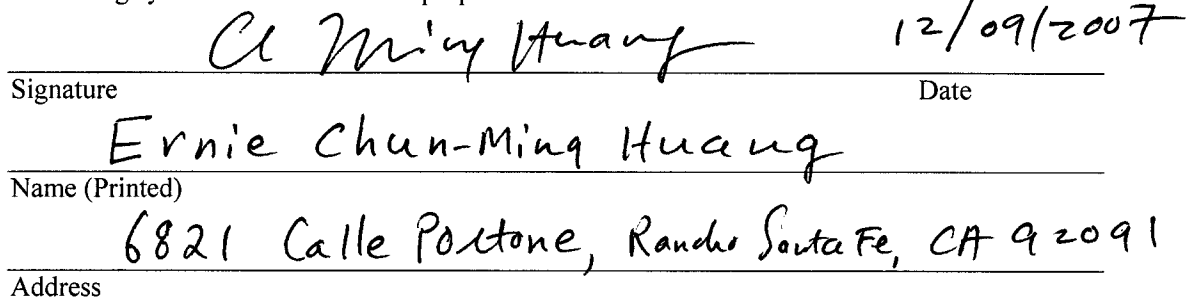 Ming Huang 12/09/2007
Signature Date
Ernie Chun-Ming Huang
Name (Printed)
6821 Calle Portone, Rancho Santa Fe, CA 92091
Address